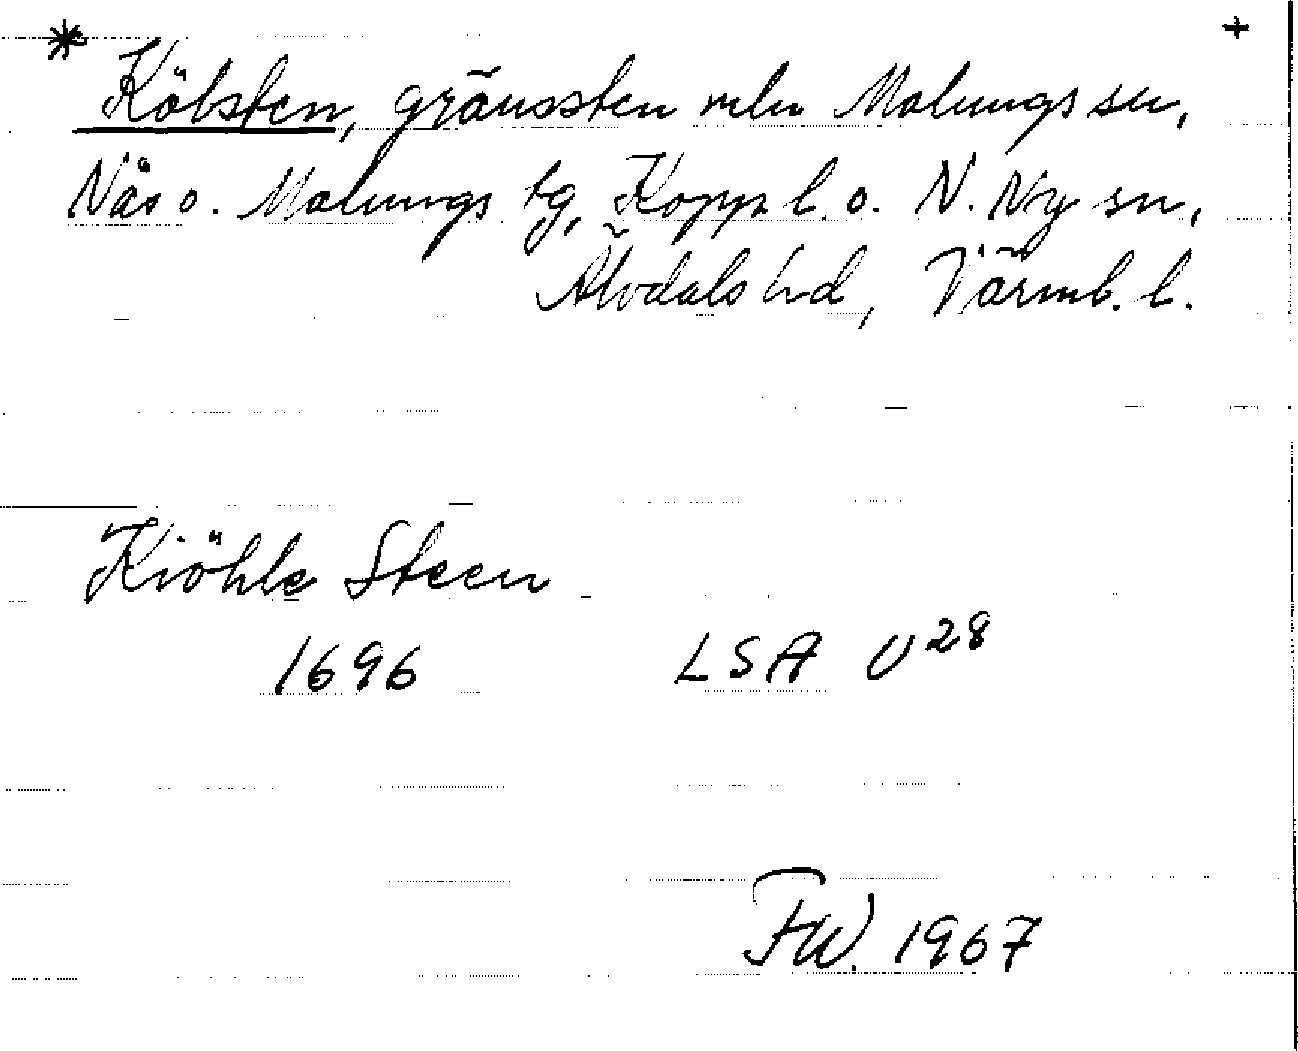 * +
Kölsten, gränssten mln Malungs sn,
Näs o. Malungs tg, Kopp. l. o. N. Ny sn,
Älvdals hd, Värml. l.
Kiöhle Steen
1696 LSA U28
FW. 1967